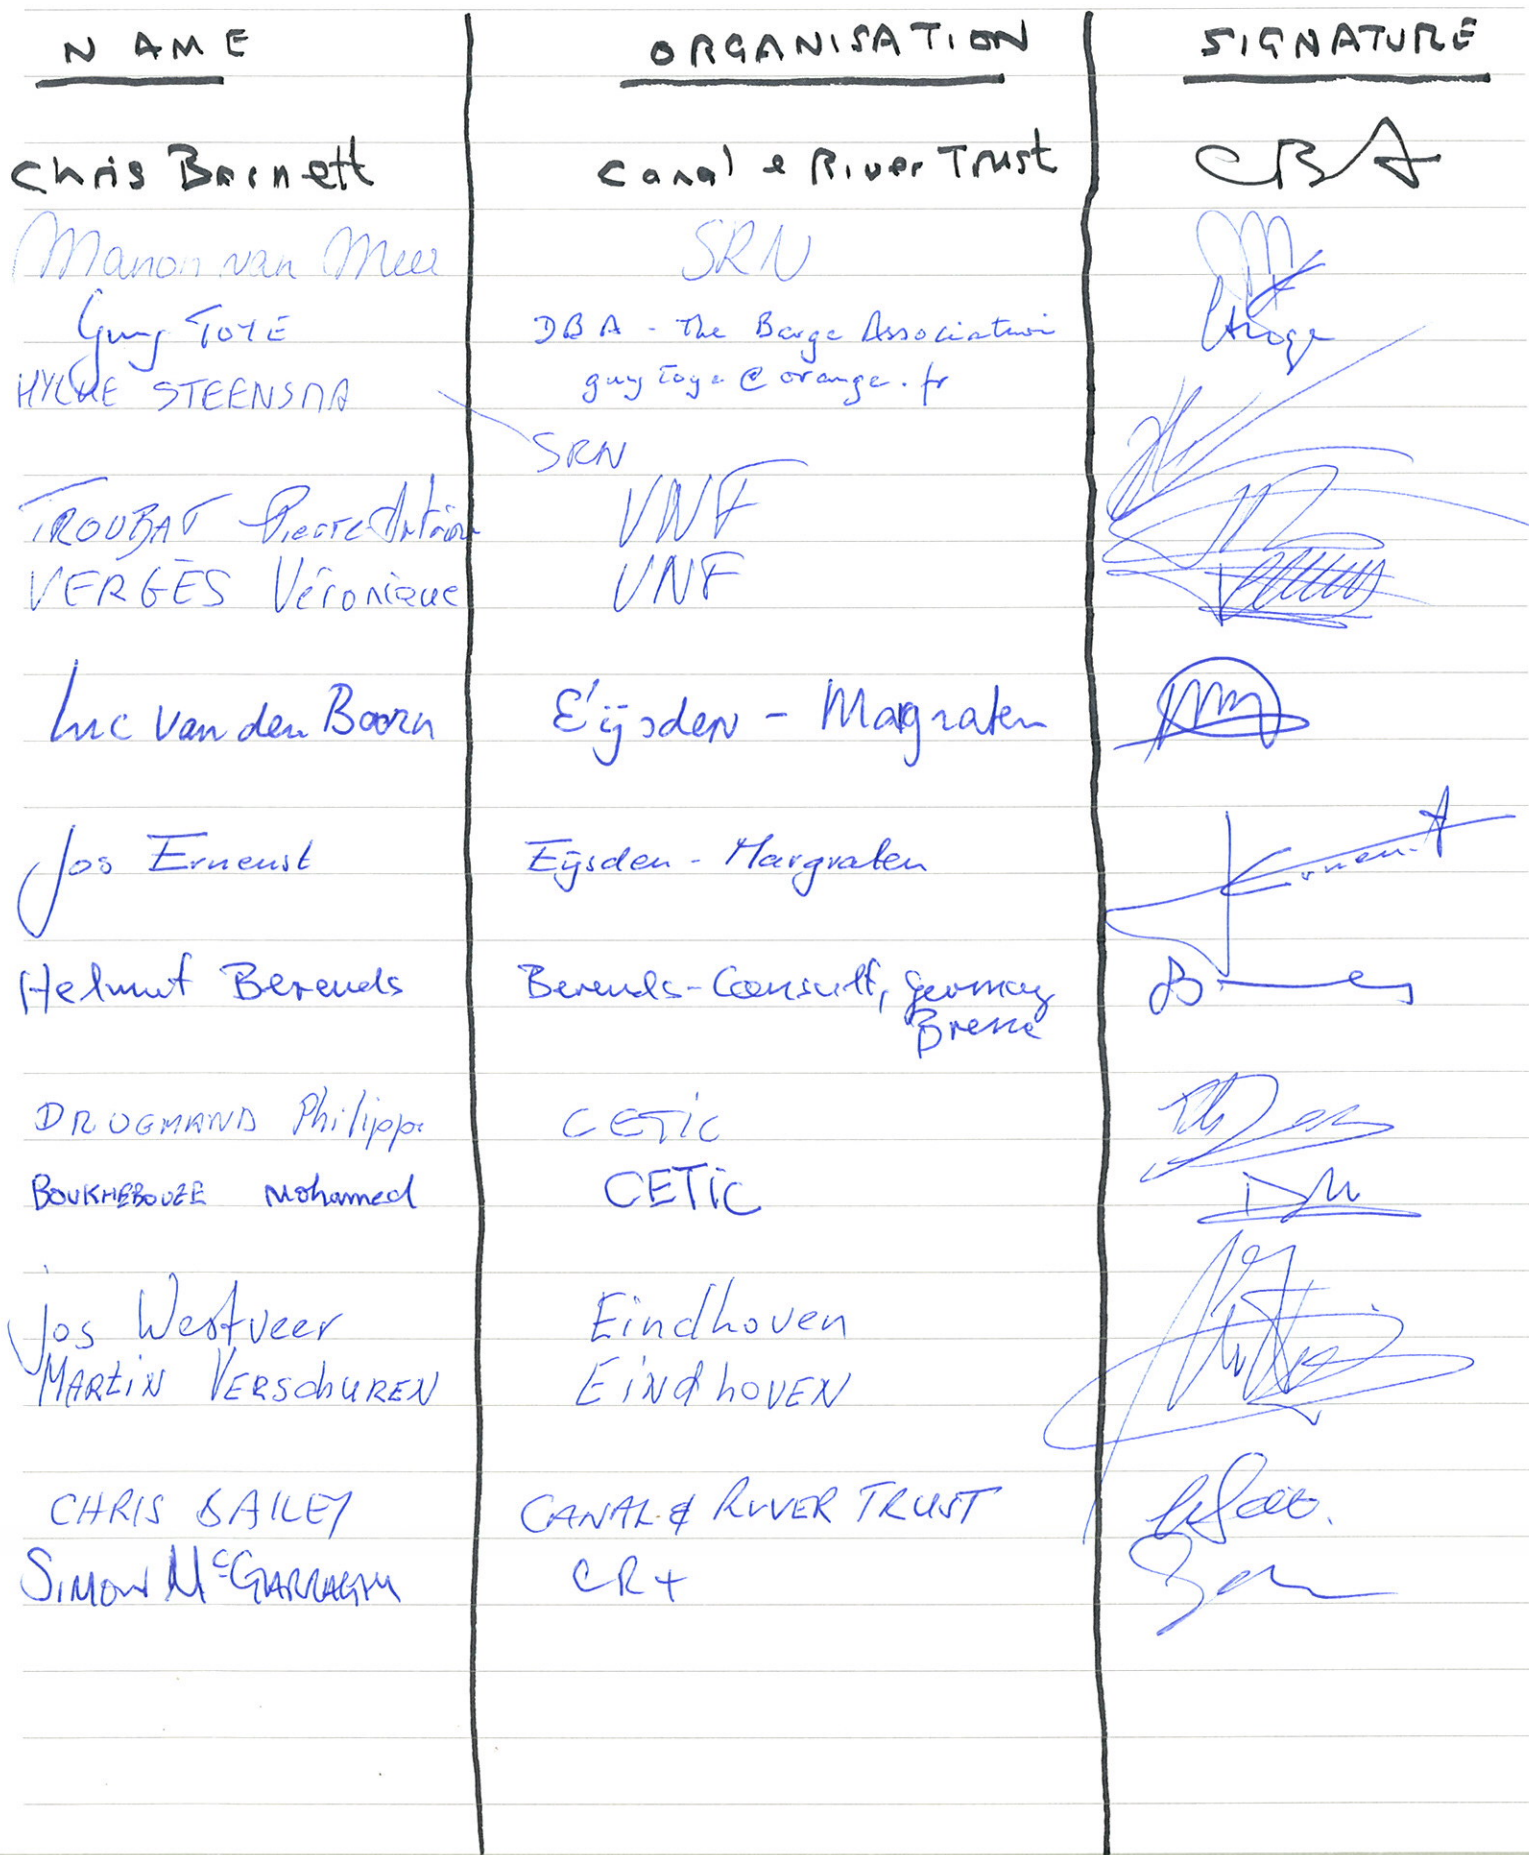 NAME ORGANISATION SIGNATURE
Chris Barnett Canal & River Trust CBA
Manon van Meer SRN
Guy TOYE DBA - The Barge Association
HYLKE STEENSMA guytoye@orange.fr
SRN
TROUBAT Pierre-Antoine VNF
VERGÈS Véronique VNF
Luc van den Boorn Eijsden - Margraten
Jos Ernenst Eijsden - Margraten
Helmut Berends Berends-Consult, Germany
DRUGMAND Philippe CETIC
BOUKHEBOUZE Mohamed CETIC DM
Jos Westveer Eindhoven
MARTIN VERSCHUREN EINDHOVEN
CHRIS BAILEY CANAL & RIVER TRUST
SIMON CR+